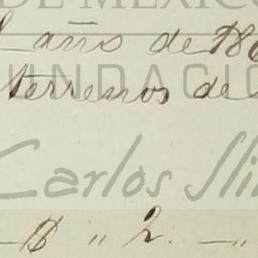 DE MÉXICO
año de 186
FUNDACIÓ
terrenos de
Carlos Sli
— $ " 2. — "